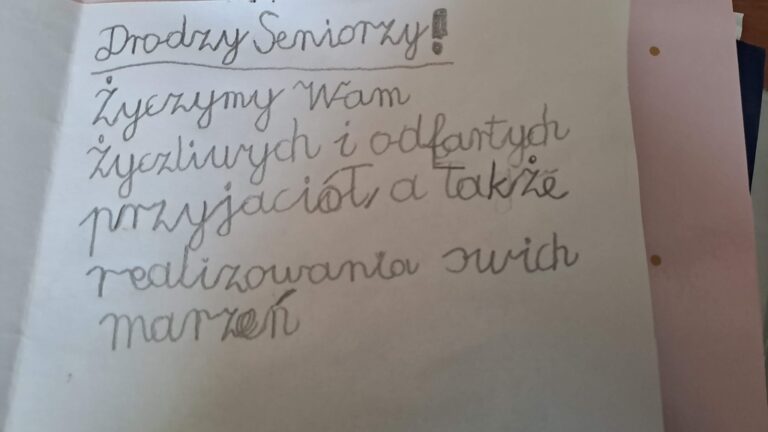 Drodzy Seniorzy!
Życzymy Wam
życzliwych i odfartych
przyjaciół, a także
realizowania swich
marzeń